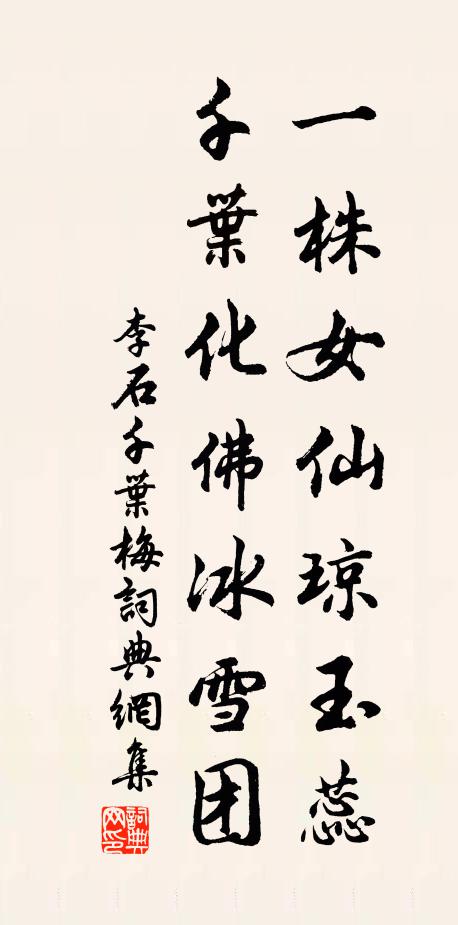 一株女仙琼玉蕊
千葉化佛冰雪团
李石千葉梅詞典網集
詞典网印